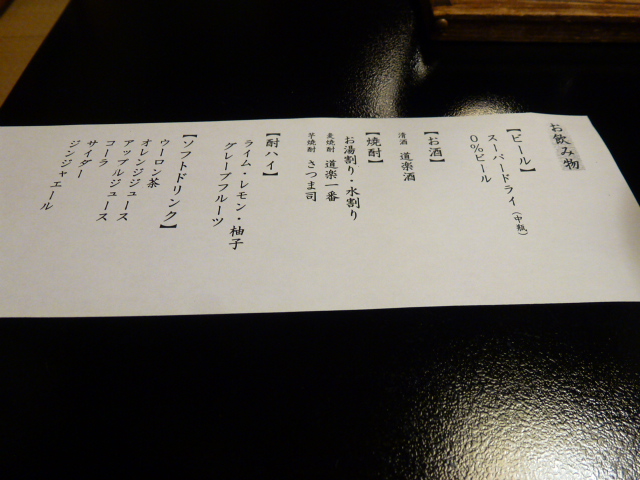 お飲み物
【ビール】
スーパードライ（中瓶）
０％ビール
【お酒】
清酒 道楽酒
【焼酎】
お湯割り・水割り
麦焼酎 道楽一番
芋焼酎 さつま司
【酎ハイ】
ライム・レモン・柚子
グレープフルーツ
【ソフトドリンク】
ウーロン茶
オレンジジュース
アップルジュース
コーラ
サイダー
ジンジャエール